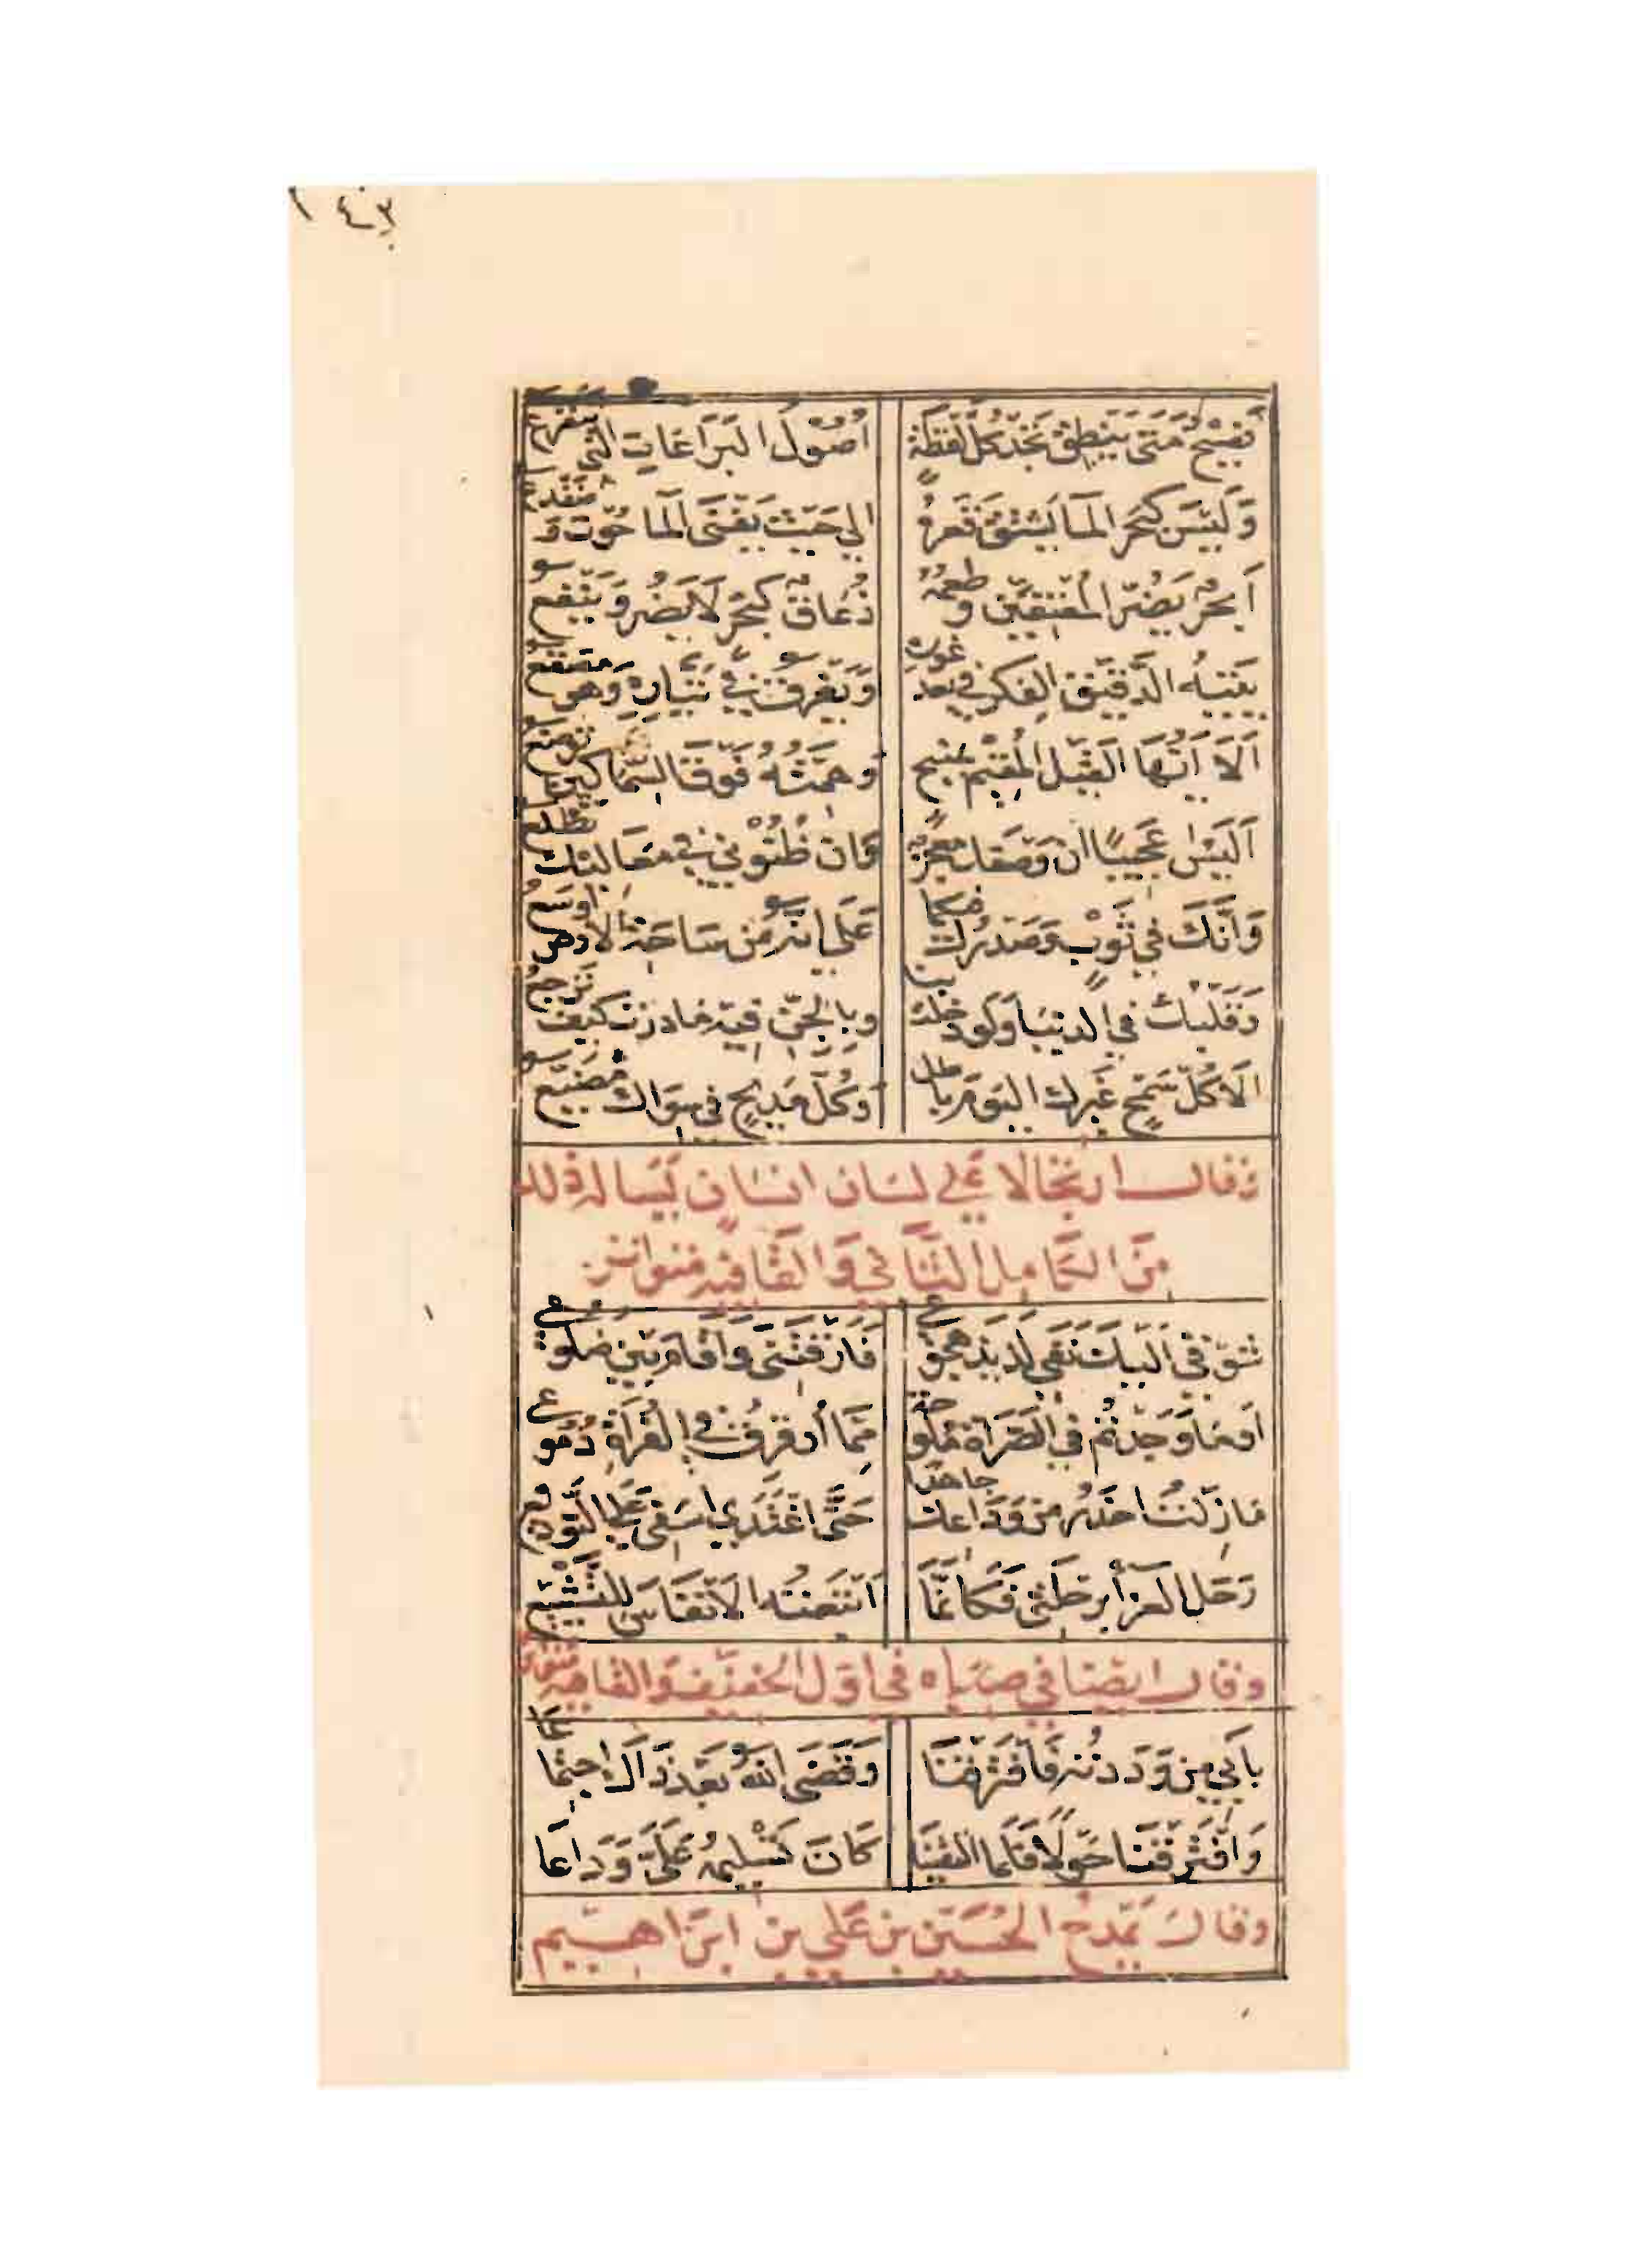 ١٤٣
فَصِيحٌ مَتَى يَنْطِقْ تَجِدْ كُلَّ لَفْظَةٍ أُصُوْلَ البَرَاعَاتِ التي تتفرع
وَلَيْسَ كَبَحْرِ المَا يَشْتَقُّ قَعرهُ الي حَيثُ يَفْنَى المَا حُوتٌ وَضفدع
أَبَحْرٌ يَضُرّ المُعْتَفِيْنَ وطعمهُ زُعَاقٌ كَبَحْرٍ لَا يَضُر وَيَنْفع
يَتيه الدَّقيق الفكر في بُعْدِ غوره وَيَغرق في تَيَّارِهِ وَهو مصقع
أَلَا أَيُّهَا القَيْل المُقيم بمَنبج وَهِمَّتُهُ فَوْقَ السِّمَاكين توضع
أَلَيْسَ عَجِيبًا أن وَصْفَك معجز وان ظُنُوْني في معَاليك تظلع
وَأنَّكَ في ثَوْبٍ وَصَدْرُك فيكما عَلَى انه مِن سَاحَةِ الارض اوسع
وَقَلْبك في الدنيَا وَلَو دخلت بنا وبالجِنّ فيه مَا دَرَت كيف تَرجعُ
أَلَا كُلّ سَمْحٍ غَيرك اليَوم باطل وَكُلّ مَديحٍ في سِوَاك مُضَيَّع
وَقال ارتجَالا عَلي لسَان انسَان يَسَاله ذلك
مِنَ الكَامِل الثَّاني وَالقَافِيه متواتر
شَوْقي اليك نَفَى لَذيذ هجوعي فَارَقْتَنى وَاقَام بَين ضلوعي
أَوَمَا وَجَدْتُم في الصَّرَاة ملوحة مِمَّا أُرَقرِقُ في الفُرَاة دُمُوعي
مَا زلت احْذَر من وَدَاعك جاهدا حَتَّى اغْتَدَى اسَفى عَلى التَّوديع
رَحَل العزَاء برحلَتي فَكَانَّمَا اتْبَعْتُه الاَنْفَاسَ للتَّشْيِيع
وقال ايضا في صبَاه في اوّل الخَفِيْف وَالقَافيه متواتر
بأَبي من وَدَدْتُه فَافْتَرَقْنَا وَقَضَى اللهُ بَعْدَ ذَاكَ اجتِمَاعَا
وَافْتَرَقْنَا حَوْلًا فَلَمَّا التَقَيْنَا كَانَ تَسْلِيمُهُ عَلَيَّ وَدَاعَا
وقال يَمْدَحُ الحُسَيْن بن عَلي بن ابرَاهيم